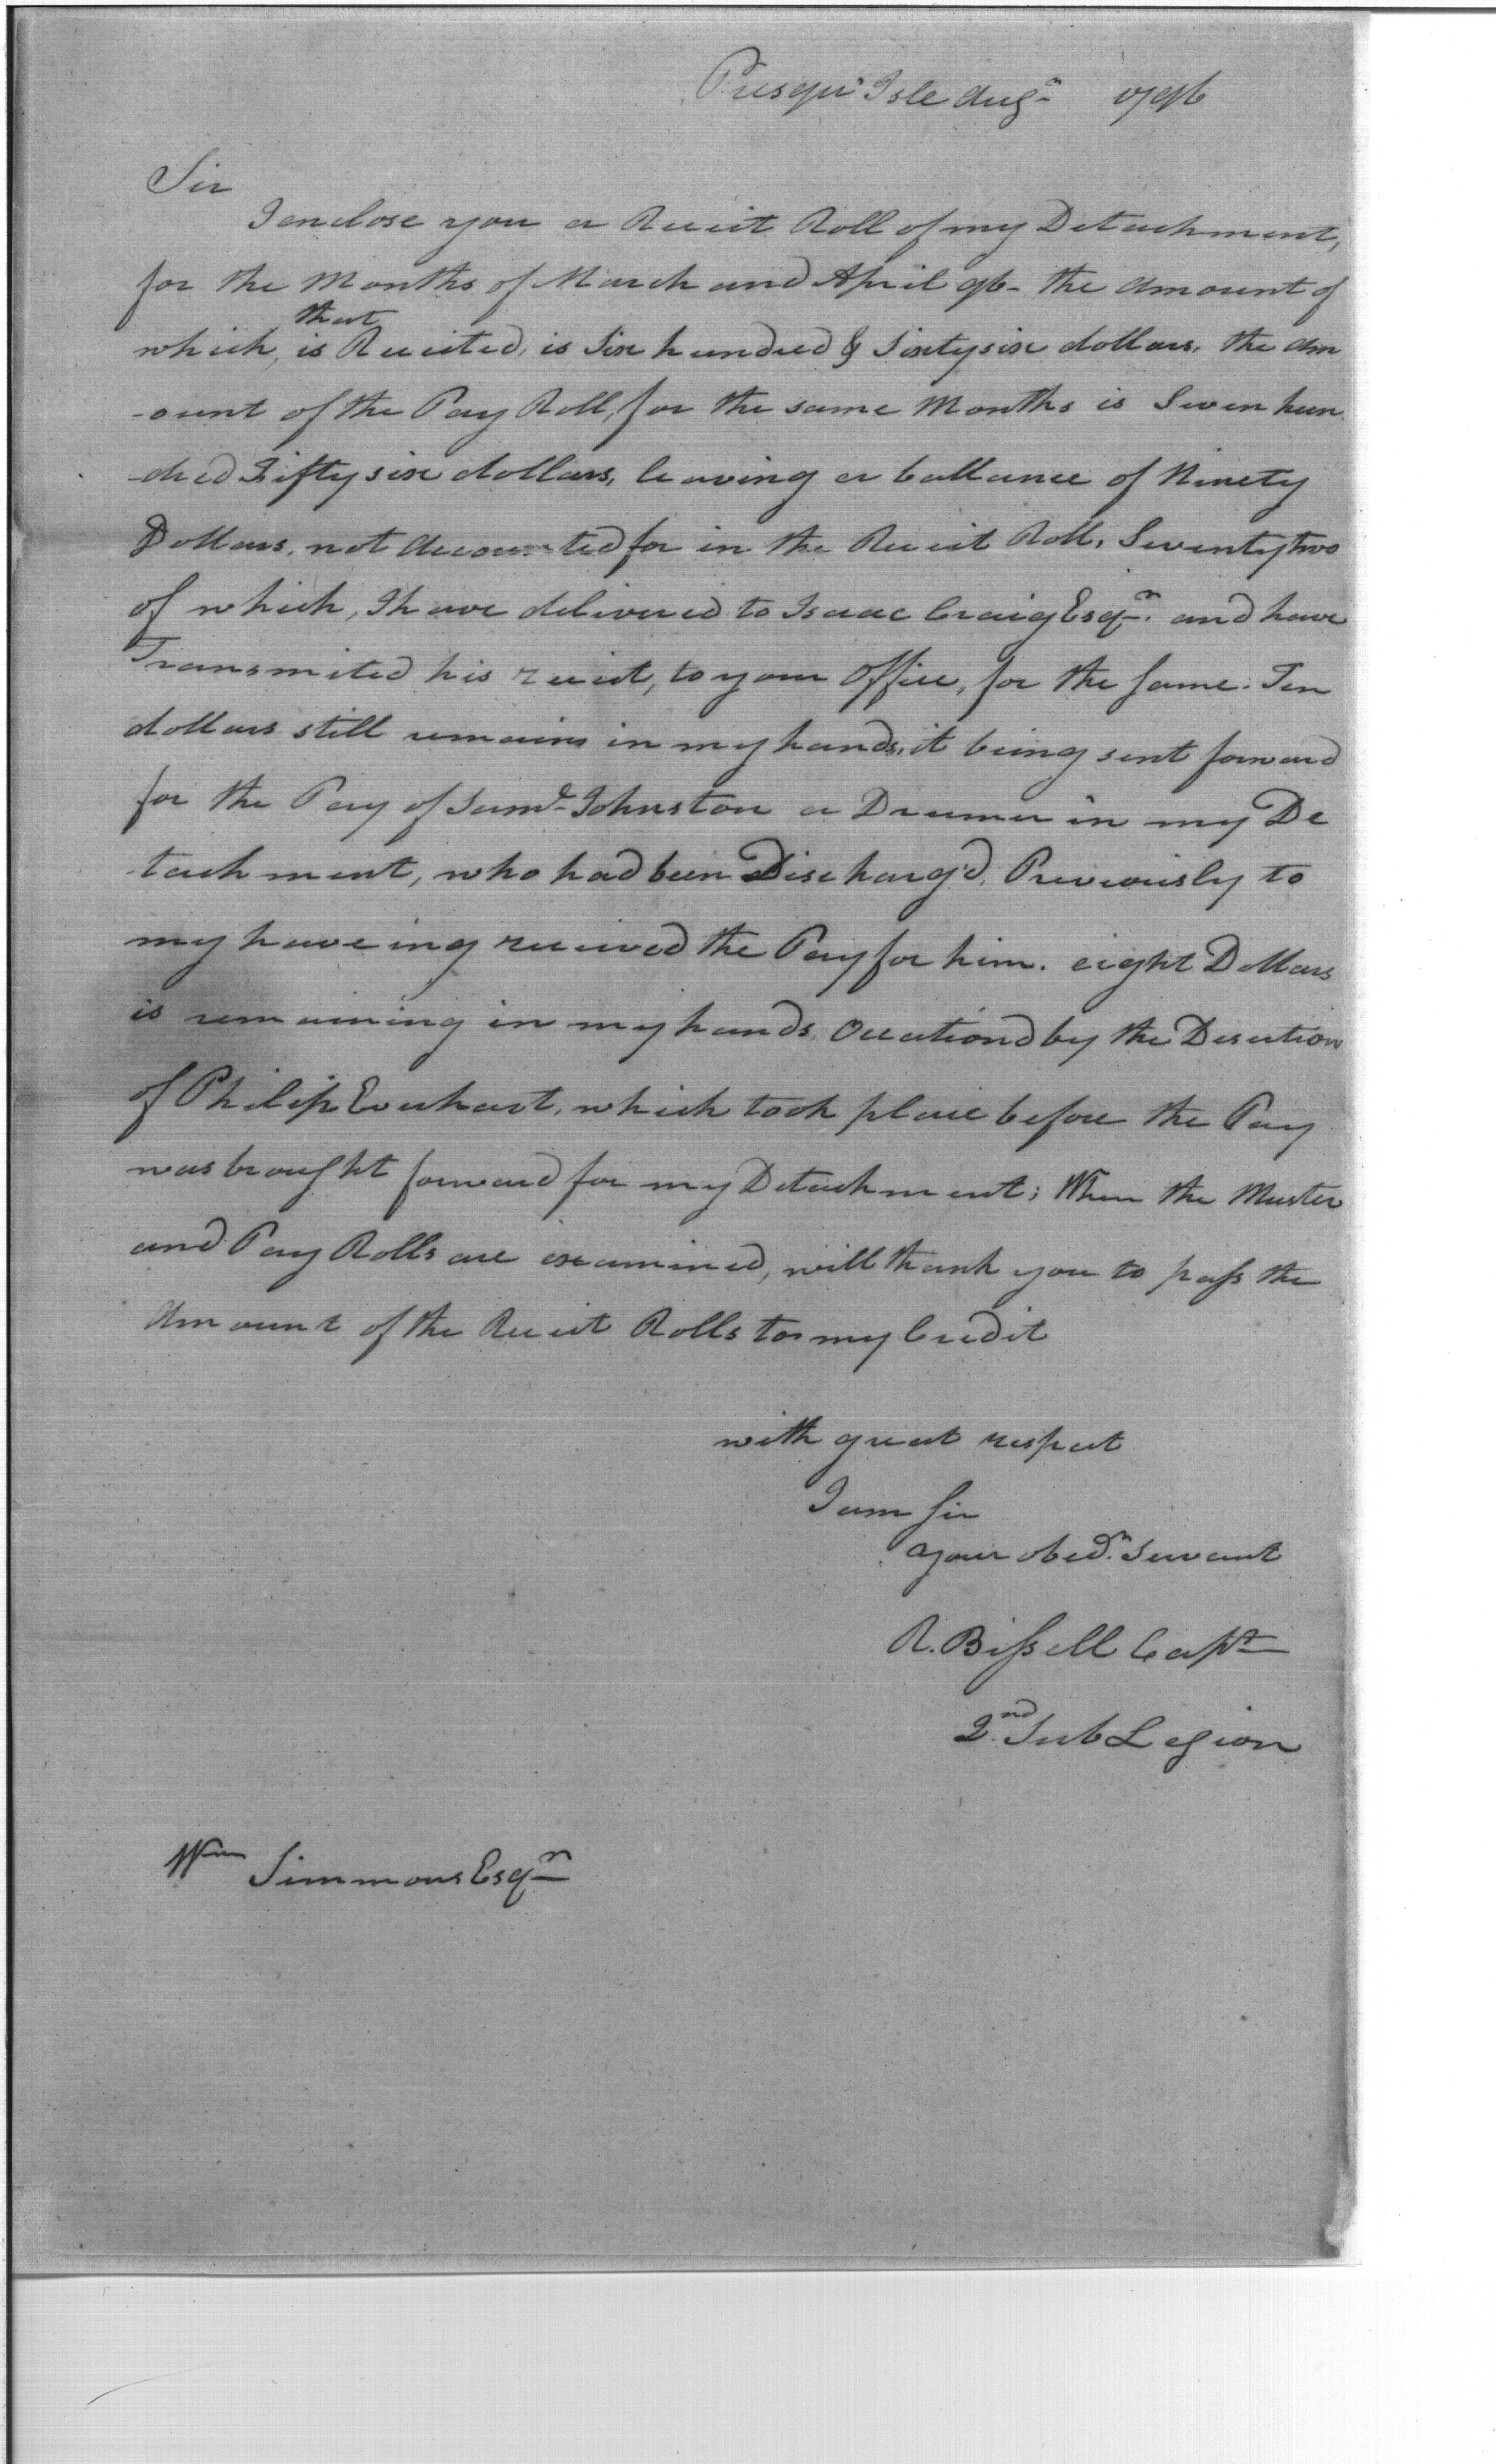 Presqu' Isle Augt 1796
Sir
I enclose you a Receit Roll of my Detachment,
for the Months of March and April 96- the amount of
that
which, is Receited, is Six hundred & Sixty six dollars, the Am
-ount of the Pay Roll, for the same Months is Seven hun
-dred Fifty six dollars, leaving a ballance of Ninety
Dollars, not accounted for in the Receit Roll, Seventy two
of which, I have delivered to Isaac Craig Esqr. and have
Transmited his receit, to your Office, for the Same. Ten
dollars still remains in my hands, it being sent forward
for the Pay of Saml. Johnston a Drumer in my De
-tachment, who had been Discharg'd, Previously to
my haveing received the Pay for him. eight Dollars
is remaining in my hands, Occationd by the Desertion
of Philip Everhart, which took place before the Pay
was brought forward for my Detachment; When the Muster
and Pay Rolls are examined, will thank you to pass the
Amount of the Receit Rolls to my Credit
with great respect
I am Sir
your obedn. Servant
R. Bissell Capt
2nd. Sub Legion
Wm Simmons Esqr